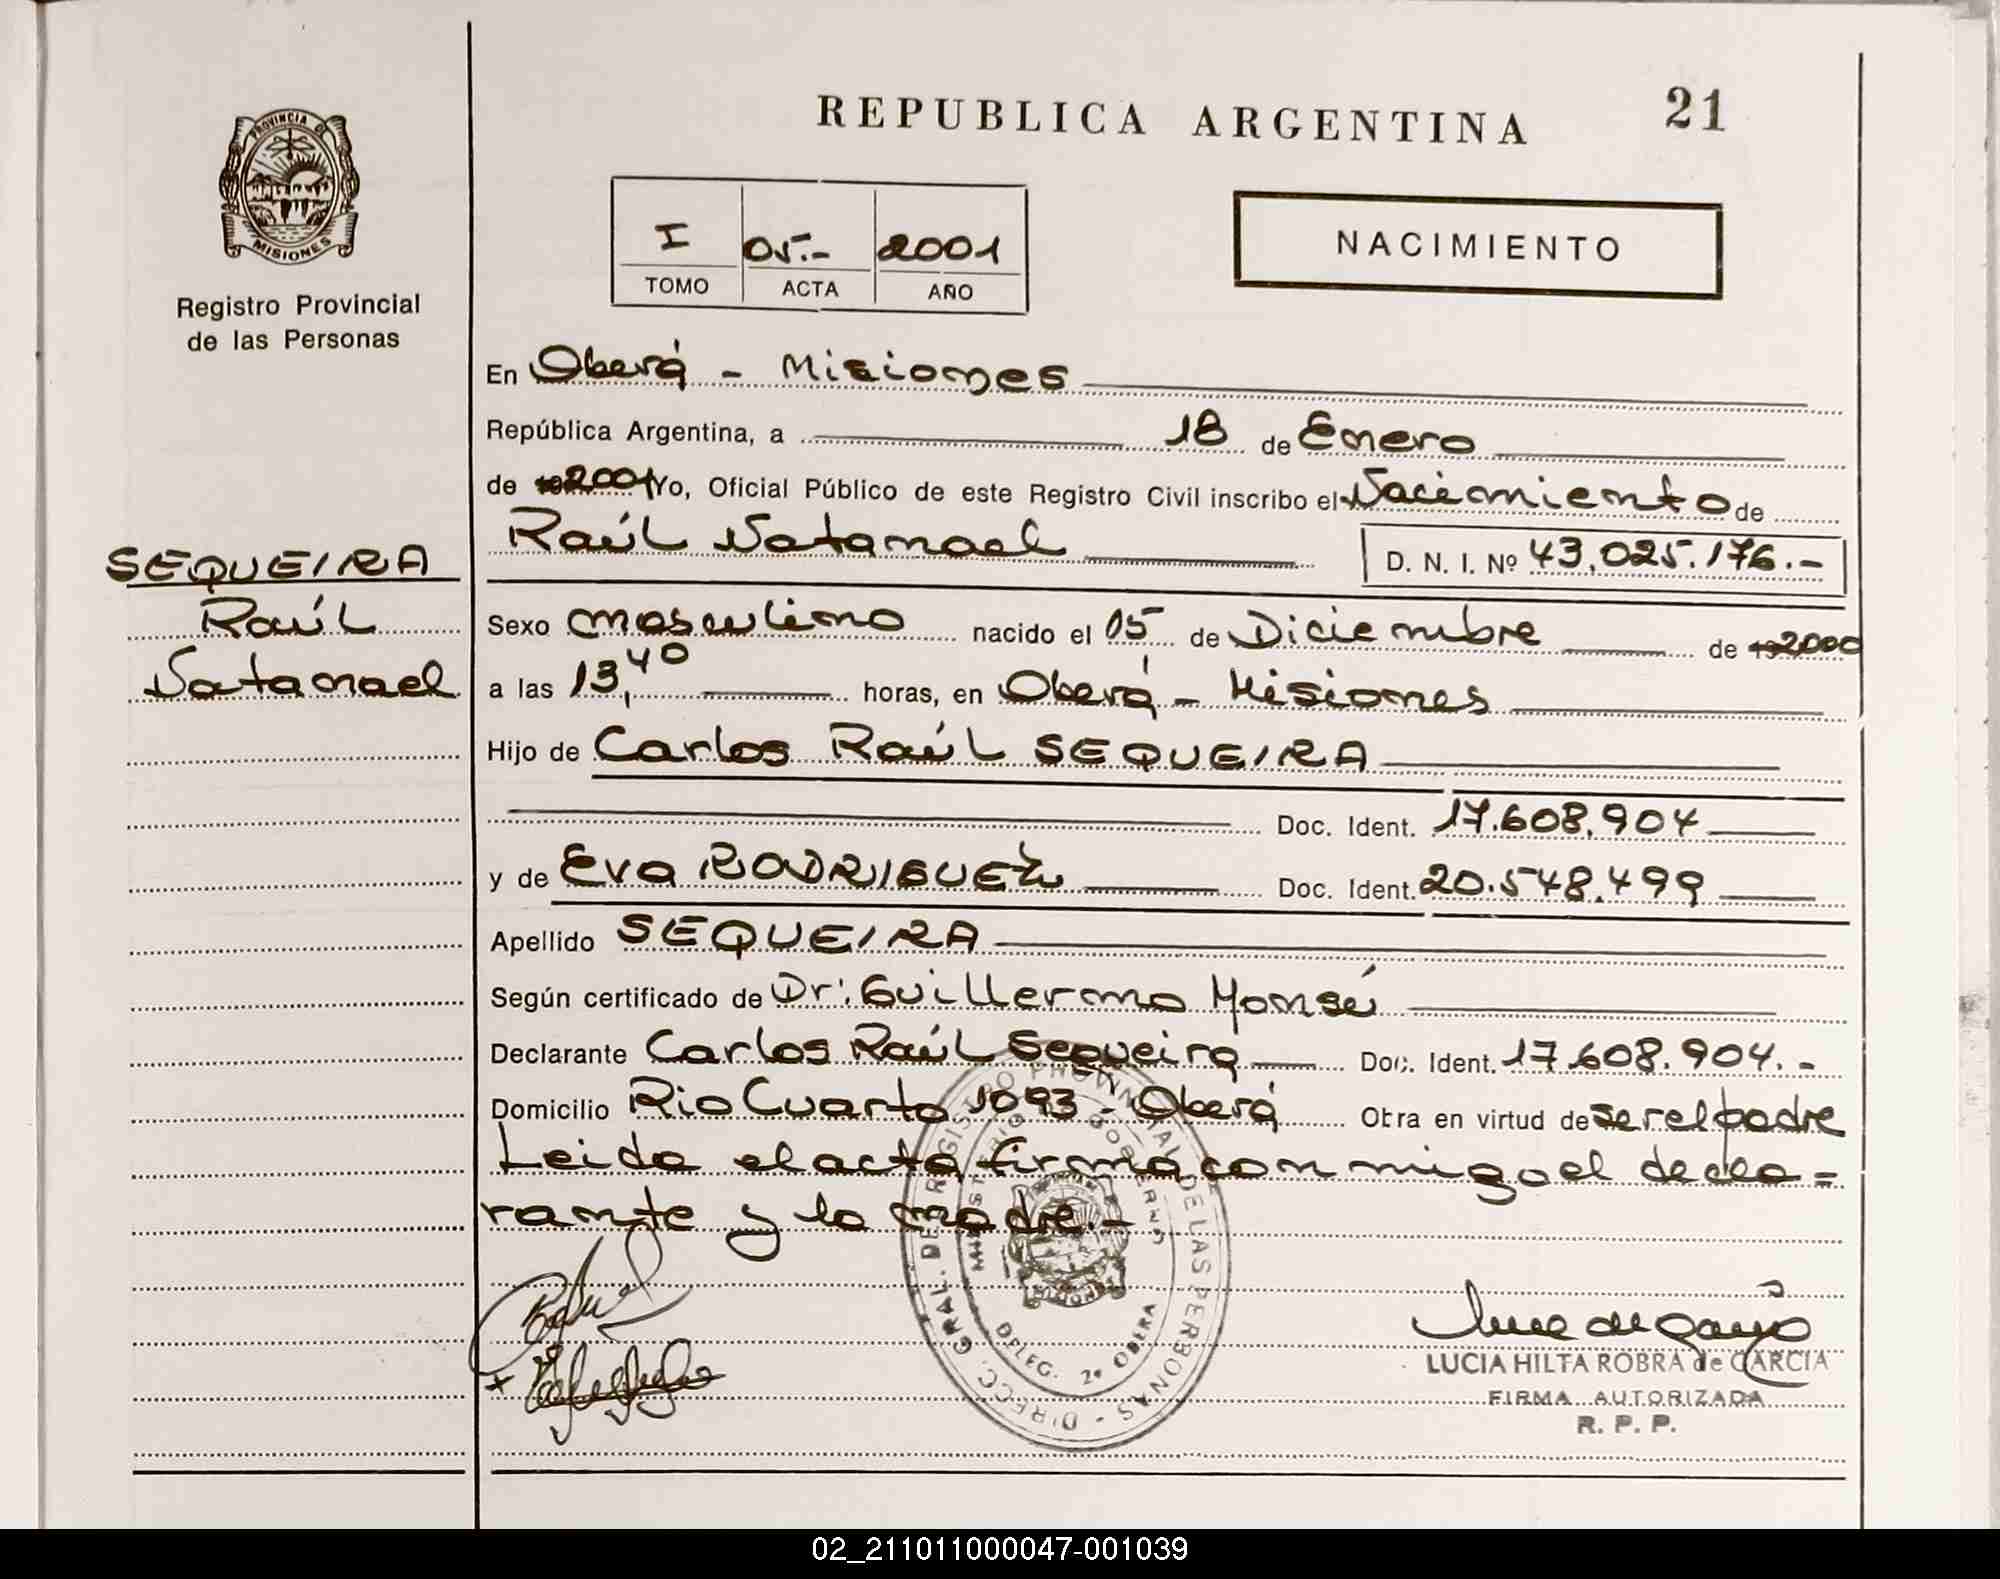 REPUBLICA ARGENTINA
21
PROVINCIA DE
MISIONES
Registro Provincial
de las Personas
I 05.- 2001
TOMO ACTA AÑO
NACIMIENTO
En Oberá - Misiones
República Argentina, a 18 de Enero
de 2001 Yo, Oficial Público de este Registro Civil inscribo el Nacimiento de
Raúl Natanael D. N. I. Nº 43.025.176.-
SEQUEIRA
Raúl
Natanael
Sexo masculino nacido el 05 de Diciembre de 2000
a las 13,40 horas, en Oberá - Misiones
Hijo de Carlos Raúl SEQUEIRA
Doc. Ident. 17.608.904
y de Eva RODRIGUEZ Doc. Ident. 20.548.499
Apellido SEQUEIRA
Según certificado de Dr: Guillermo Monsé
Declarante Carlos Raúl Sequeira Doc. Ident. 17.608.904.-
Domicilio Rio Cuarto 1093 - Oberá Obra en virtud de ser el padre
Leida el acta firma con migo el decla=
rante y la madre.-
DIRECC. GRAL. DE REGISTRO PROVINCIAL DE LAS PERSONAS
MINISTERIO GOBIERNO
DELEG. 2º OBERA
LUCIA HILTA ROBRA de GARCIA
FIRMA AUTORIZADA
R. P. P.
02_211011000047-001039